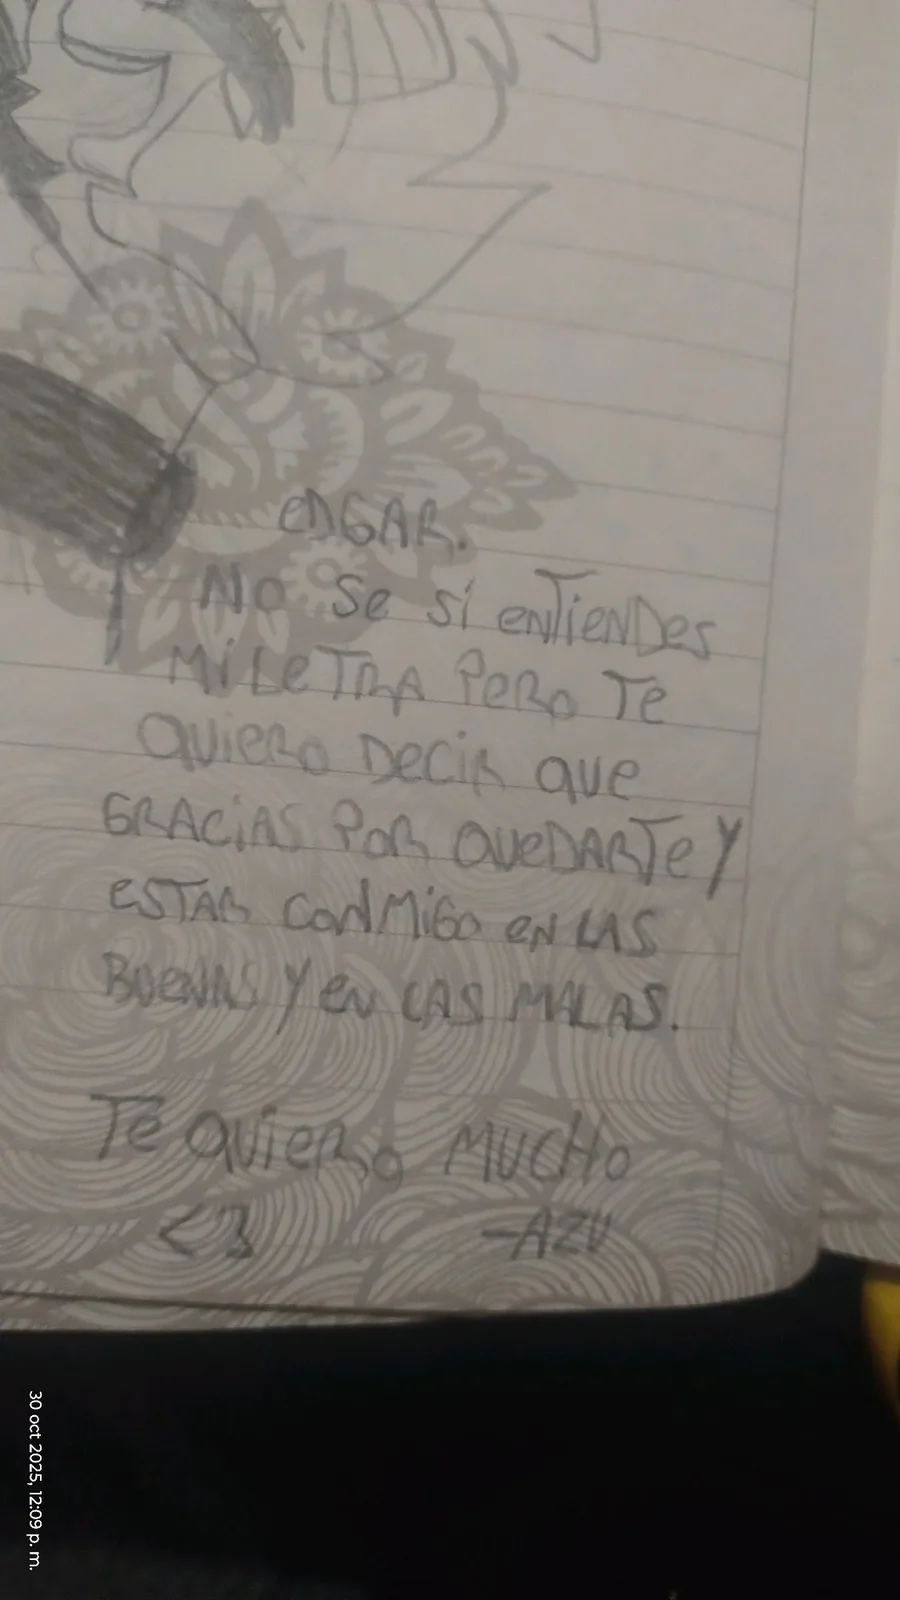 EDGAR.
NO Se si ENTIENDES
MI LETRA PERO TE
QUIERO DECIR QUE
GRACIAS POR QUEDARTE Y
ESTAR CONMIGO EN LAS
BUENAS Y EN LAS MALAS.
TE QUIERO MUCHO
<3 -AZU
30 oct 2025, 12:09 p. m.